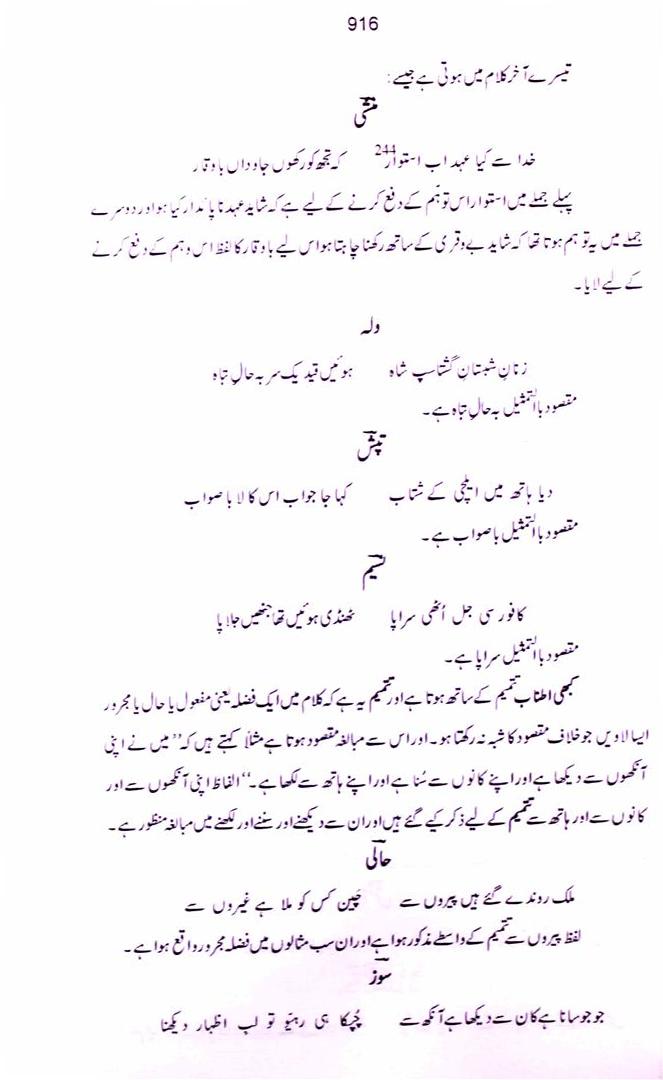 916
تیسرے آخر کلام میں ہوتی ہے جیسے:
منشی
خدا سے کیا عہد اب استوار244 کہ تجھ کو رکھوں جاوداں باوقار
پہلے جملے میں استوار اس توہّم کے دفع کرنے کے لیے ہے کہ شاید عہد ناپائدار کیا ہو اور دوسرے
جملے میں یہ توہم ہوتا تھا کہ شاید بے وقری کے ساتھ رکھنا چاہتا ہو اس لیے باوقار کا لفظ اس وہم کے دفع کرنے
کے لیے لایا۔
ولہ
زنانِ شبستانِ گشتاسپ شاہ ہوئیں قید یک سر بہ حالِ تباہ
مقصود باالتمثیل بہ حالِ تباہ ہے۔
تپش
دیا ہاتھ میں ایلچی کے شتاب کہا جا جواب اس کا لا باصواب
مقصود باالتمثیل باصواب ہے۔
نسیم
کافور سی جل اُٹھی سراپا ٹھنڈی ہوئیں تھا جنھیں جلاپا
مقصود باالتمثیل سراپا ہے۔
کبھی اطناب تتمیم کے ساتھ ہوتا ہے اور تتمیم یہ ہے کہ کلام میں ایک فضلہ یعنی مفعول یا حال یا مجرور
ایسا لاویں جو خلاف مقصود کا شبہ نہ رکھتا ہو۔ اور اس سے مبالغہ مقصود ہوتا ہے مثلاً کہتے ہیں کہ ’’میں نے اپنی
آنکھوں سے دیکھا ہے اور اپنے کانوں سے سُنا ہے اور اپنے ہاتھ سے لکھا ہے۔‘‘ الفاظ اپنی آنکھوں سے اور
کانوں سے اور ہاتھ سے تتمیم کے لیے ذکر کیے گئے ہیں اور ان سے دیکھنے اور سننے اور لکھنے میں مبالغہ منظور ہے۔
حالی
ملک روندے گئے ہیں پیروں سے چَین کس کو ملا ہے غیروں سے
لفظ پیروں سے تتمیم کے واسطے مذکور ہوا ہے اور ان سب مثالوں میں فضلہ مجرور واقع ہوا ہے۔
سوز
جو جو سانا ہے کان سے دیکھا ہے آنکھ سے چُپکا ہی رہیّو تو لب اظہار دیکھنا